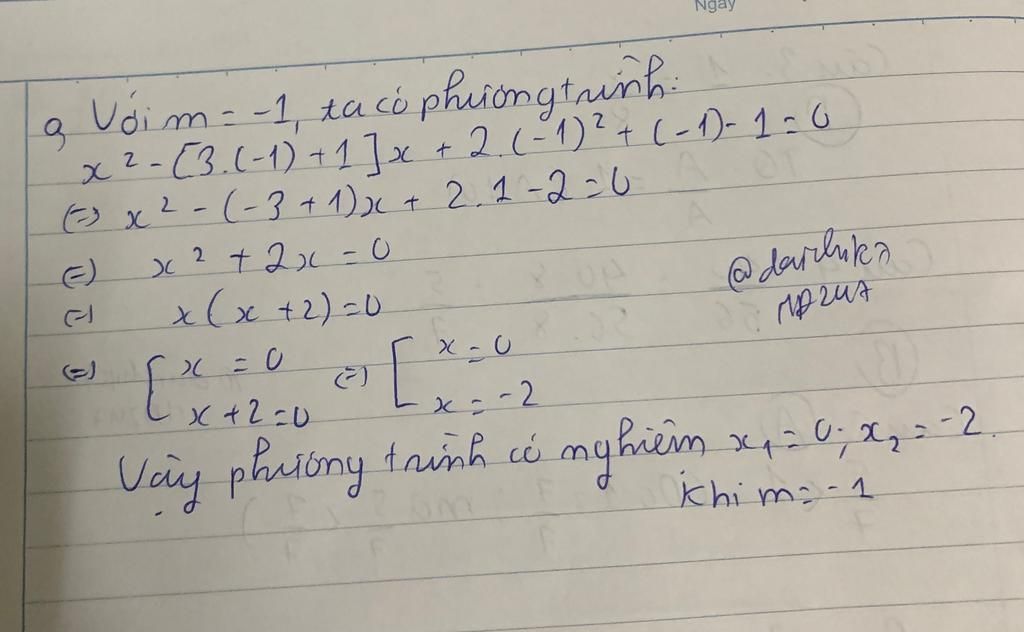 Ngày
a, Với m = -1, ta có phương trình:
x² - [3.(-1) + 1]x + 2.(-1)² + (-1) - 1 = 0
(=) x² - (-3 + 1)x + 2.1 - 2 = 0
(=) x² + 2x = 0
(=) x(x + 2) = 0
(=) [ x = 0 (=) [ x = 0
x + 2 = 0 x = -2
Vậy phương trình có nghiệm x₁ = 0; x₂ = -2.
khi m = -1